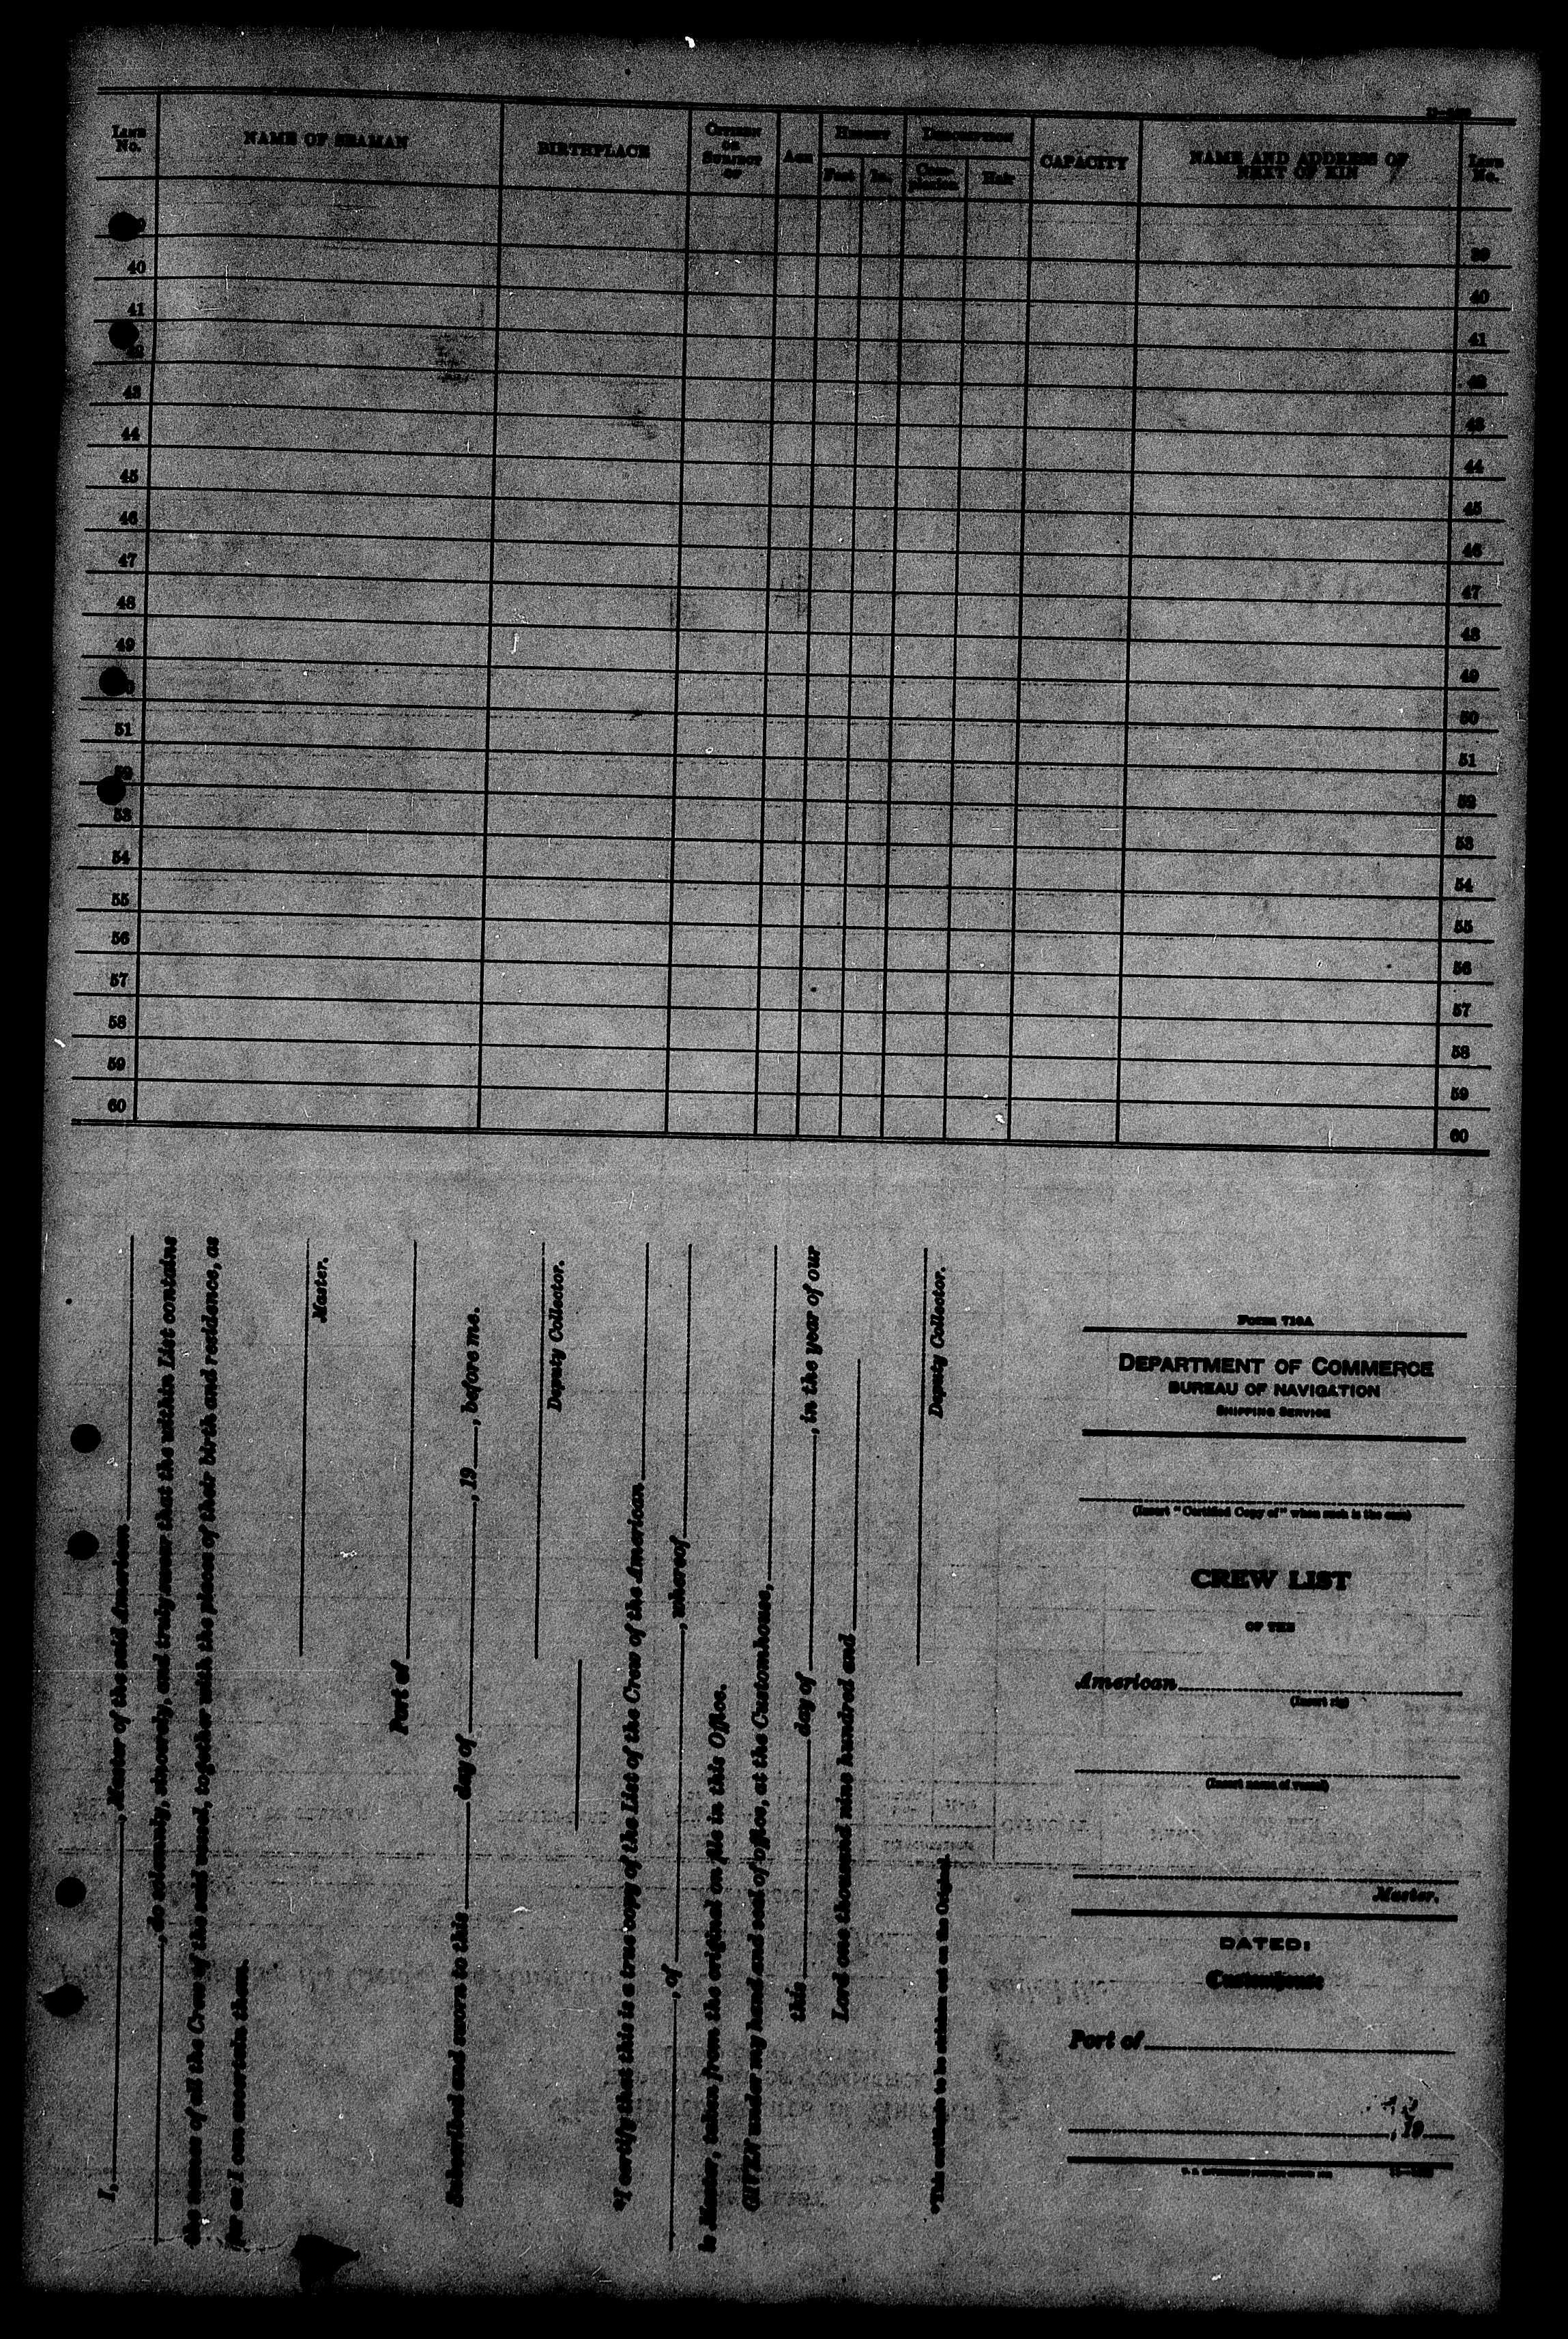 LINE No.
NAME OF SEAMAN
BIRTHPLACE
CITIZEN OR SUBJECT OF
AGE
HEIGHT
Feet
In.
DESCRIPTION
Complexion
Hair
CAPACITY
NAME AND ADDRESS OF NEXT OF KIN
LINE No.
39
40 40
41 41
42 42
43 43
44 44
45 45
46 46
47 47
48 48
49 49
50
51 51
52 52
53 53
54 54
55 55
56 56
57 57
58 58
59 59
60 60
I, , Master of the said American
, do solemnly, sincerely, and truly swear that the within List contains
the names of all the Crew of the said vessel, together with the places of their birth and residence, as
far as I can ascertain them.
Master.
Port of
Subscribed and sworn to this day of , 19 , before me.
Deputy Collector.
*I certify that this is a true copy of the List of the Crew of the American
, of , whereof
is Master, taken from the original on file in this Office.
GIVEN under my hand and seal of office, at the Customhouse,
this day of , in the year of our
Lord one thousand nine hundred and
Deputy Collector.
*This certificate to be stricken out on the Original.
Form 710A
DEPARTMENT OF COMMERCE
BUREAU OF NAVIGATION
SHIPPING SERVICE
(Insert "Certified Copy of" when such is the case)
CREW LIST
OF THE
American
(Insert rig)
(Insert name of vessel)
Master.
DATED:
Customhouse
Port of
, 19